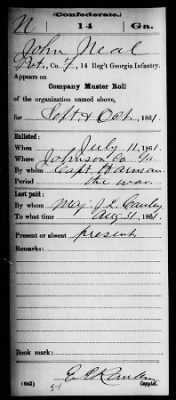 (Confederate.)
N | 14 | Ga.
John Neal
Pvt., Co. F, 14 Reg't Georgia Infantry.
Appears on
Company Muster Roll
of the organization named above,
for Sept & Oct, 1861.
Enlisted:
When July 11, 1861.
Where Johnson Co Ga.
By whom Capt Harman
Period the war.
Last paid:
By whom Maj. J. L.
To what time Aug 31, 1861.
Present or absent present
Remarks:
Book mark:
(642)
Copyist.